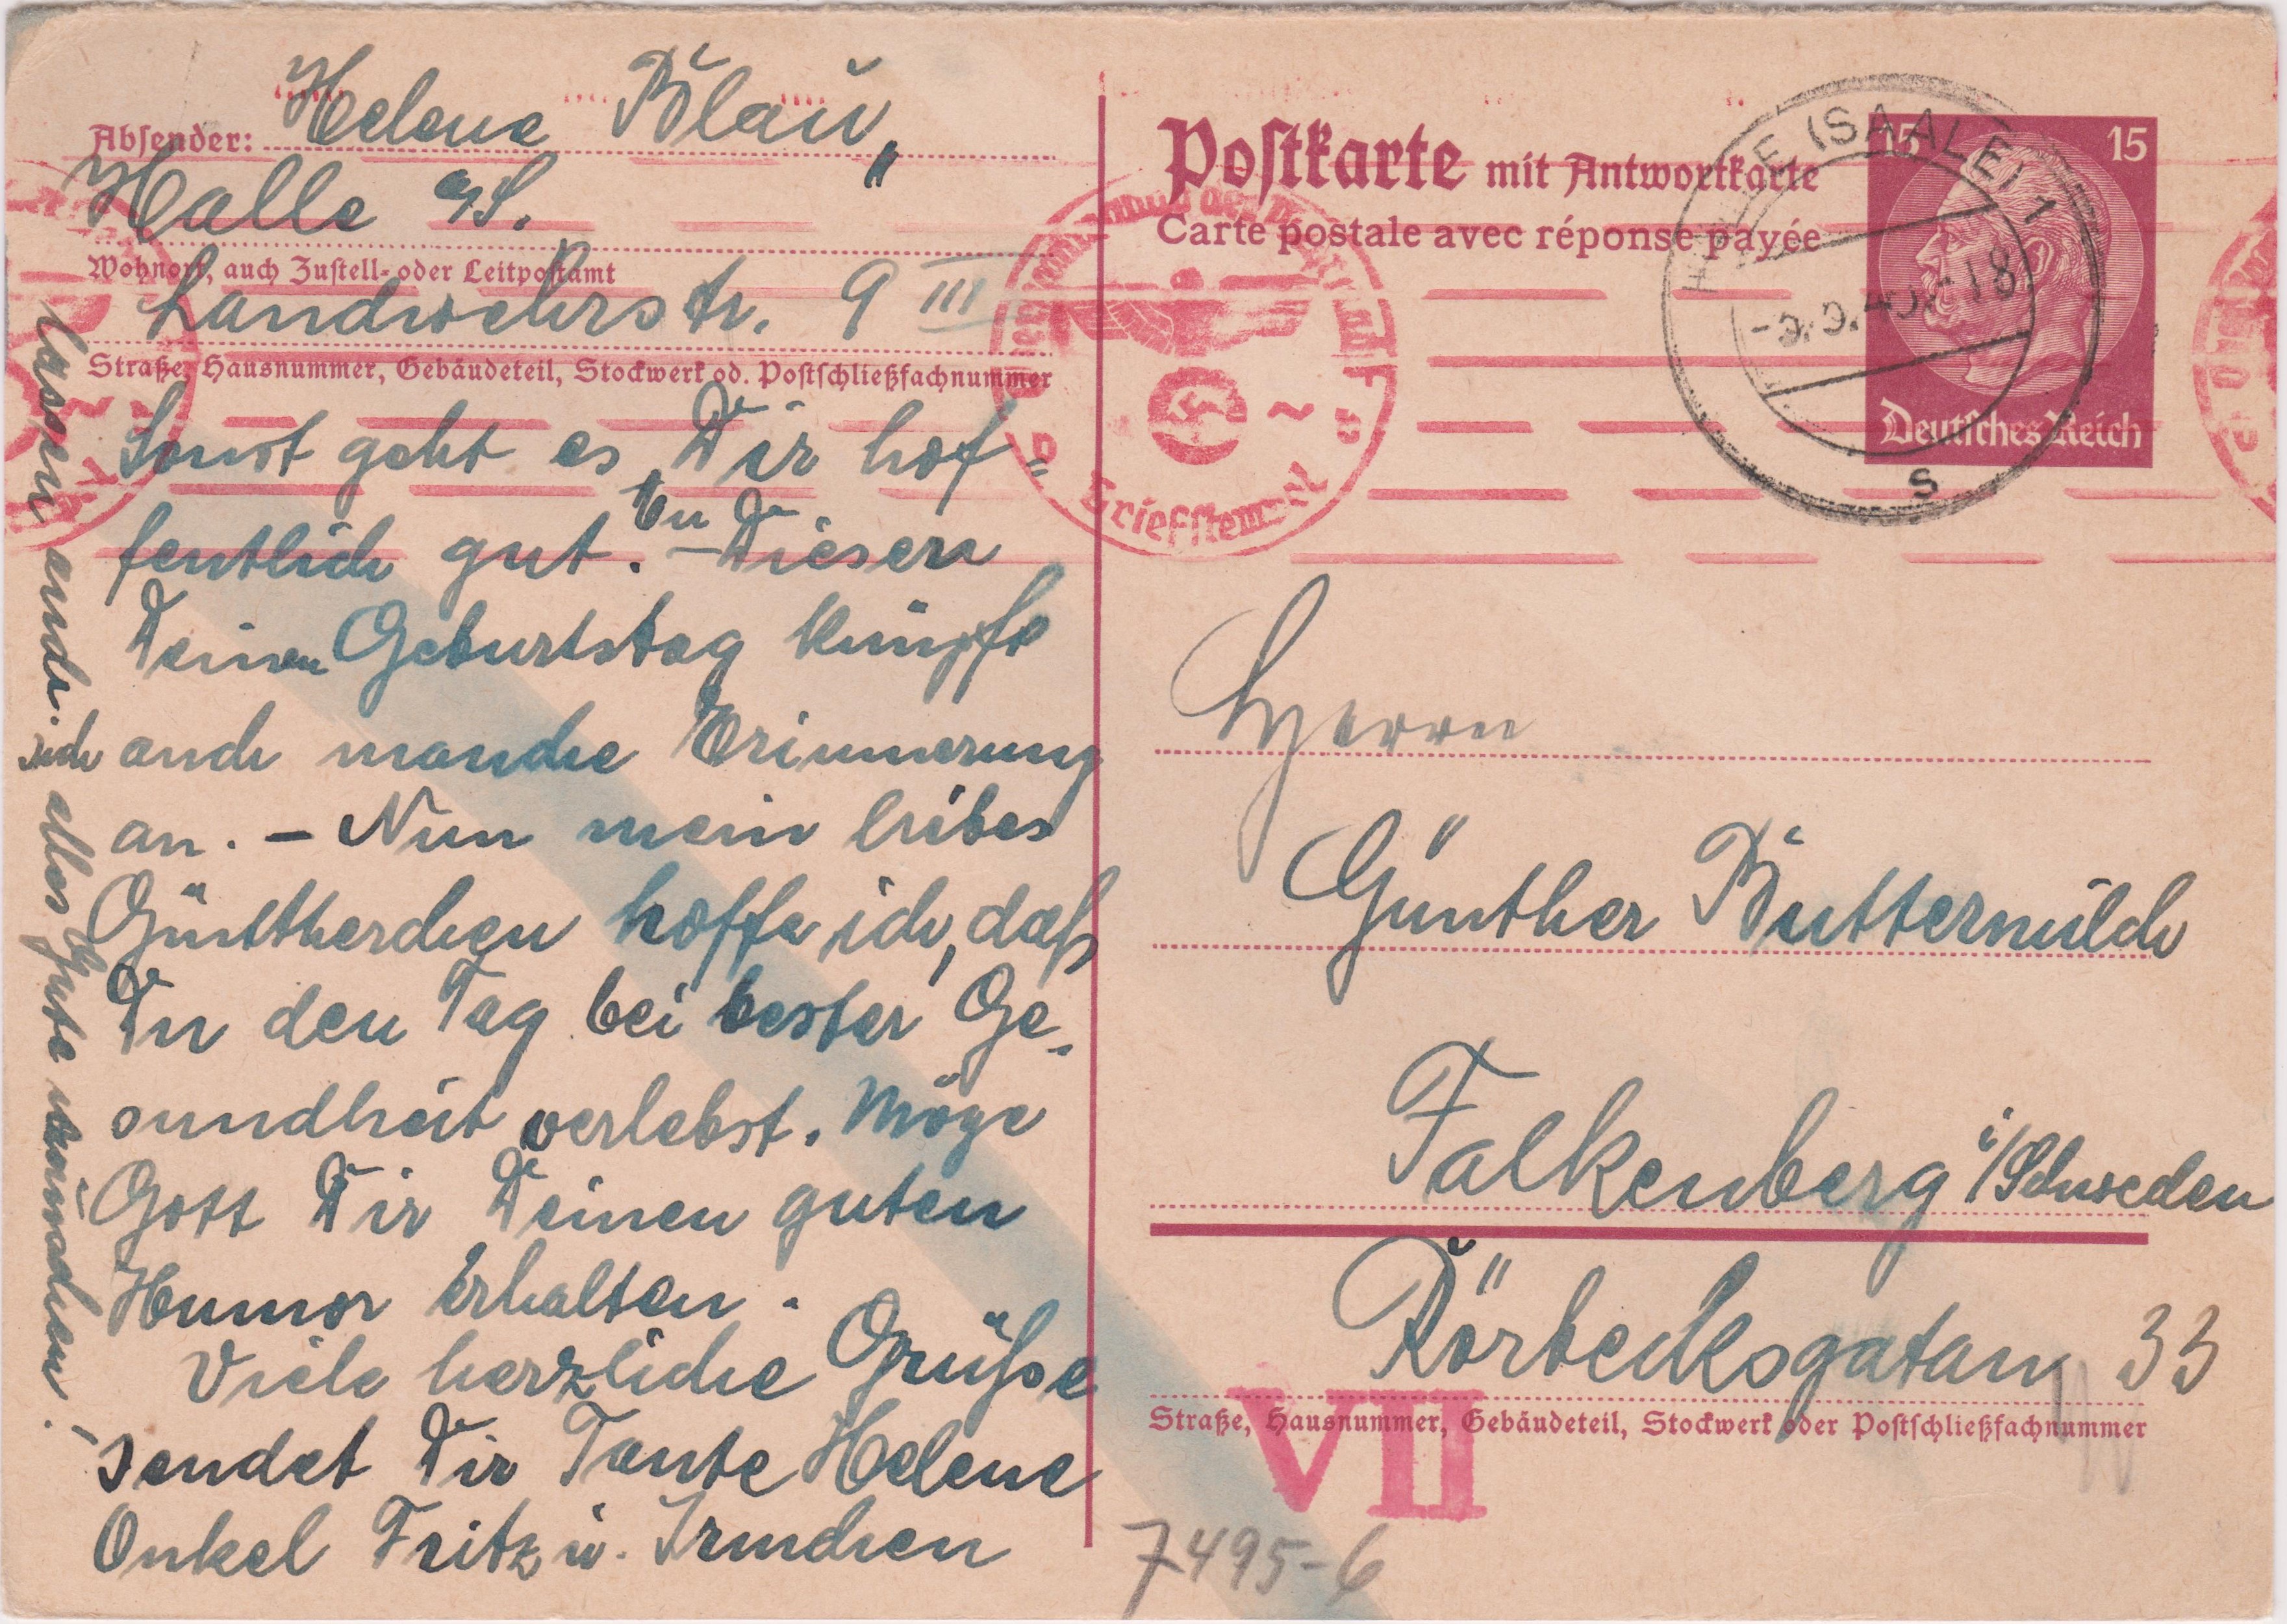 Absender: Helene Blau,
Halle a/S.
Wohnort, auch Zustell- oder Leitpostamt
Landwehrstr. 9 III
Straße, Hausnummer, Gebäudeteil, Stockwerk od. Postschließfachnummer
Sonst geht es Dir hof=
fentlich gut. – An Diesen
Deinen Geburtstag knüpfe
auch manche Erinnerung
an. – Nun mein liebes
Güntherchen hoffe ich, daß
Du den Tag bei bester Ge-
sundheit verlebst. Möge
Gott Dir Deinen guten
Humor erhalten.
Viele herzliche Grüße
sendet Dir Tante Helene
Onkel Fritz u. Irmchen
lassen auch alles Gute wünschen! –
Postkarte mit Antwortkarte
Carte postale avec réponse payée
HALLE (SAALE) 1
40.-18
s
15 15
Deutsches Reich
Briefstempel
Herrn
Günther Buttermilch
Falkenberg i/Schweden
Rörbecksgatan 33
Straße, Hausnummer, Gebäudeteil, Stockwerk oder Postschließfachnummer
VII
7495-6